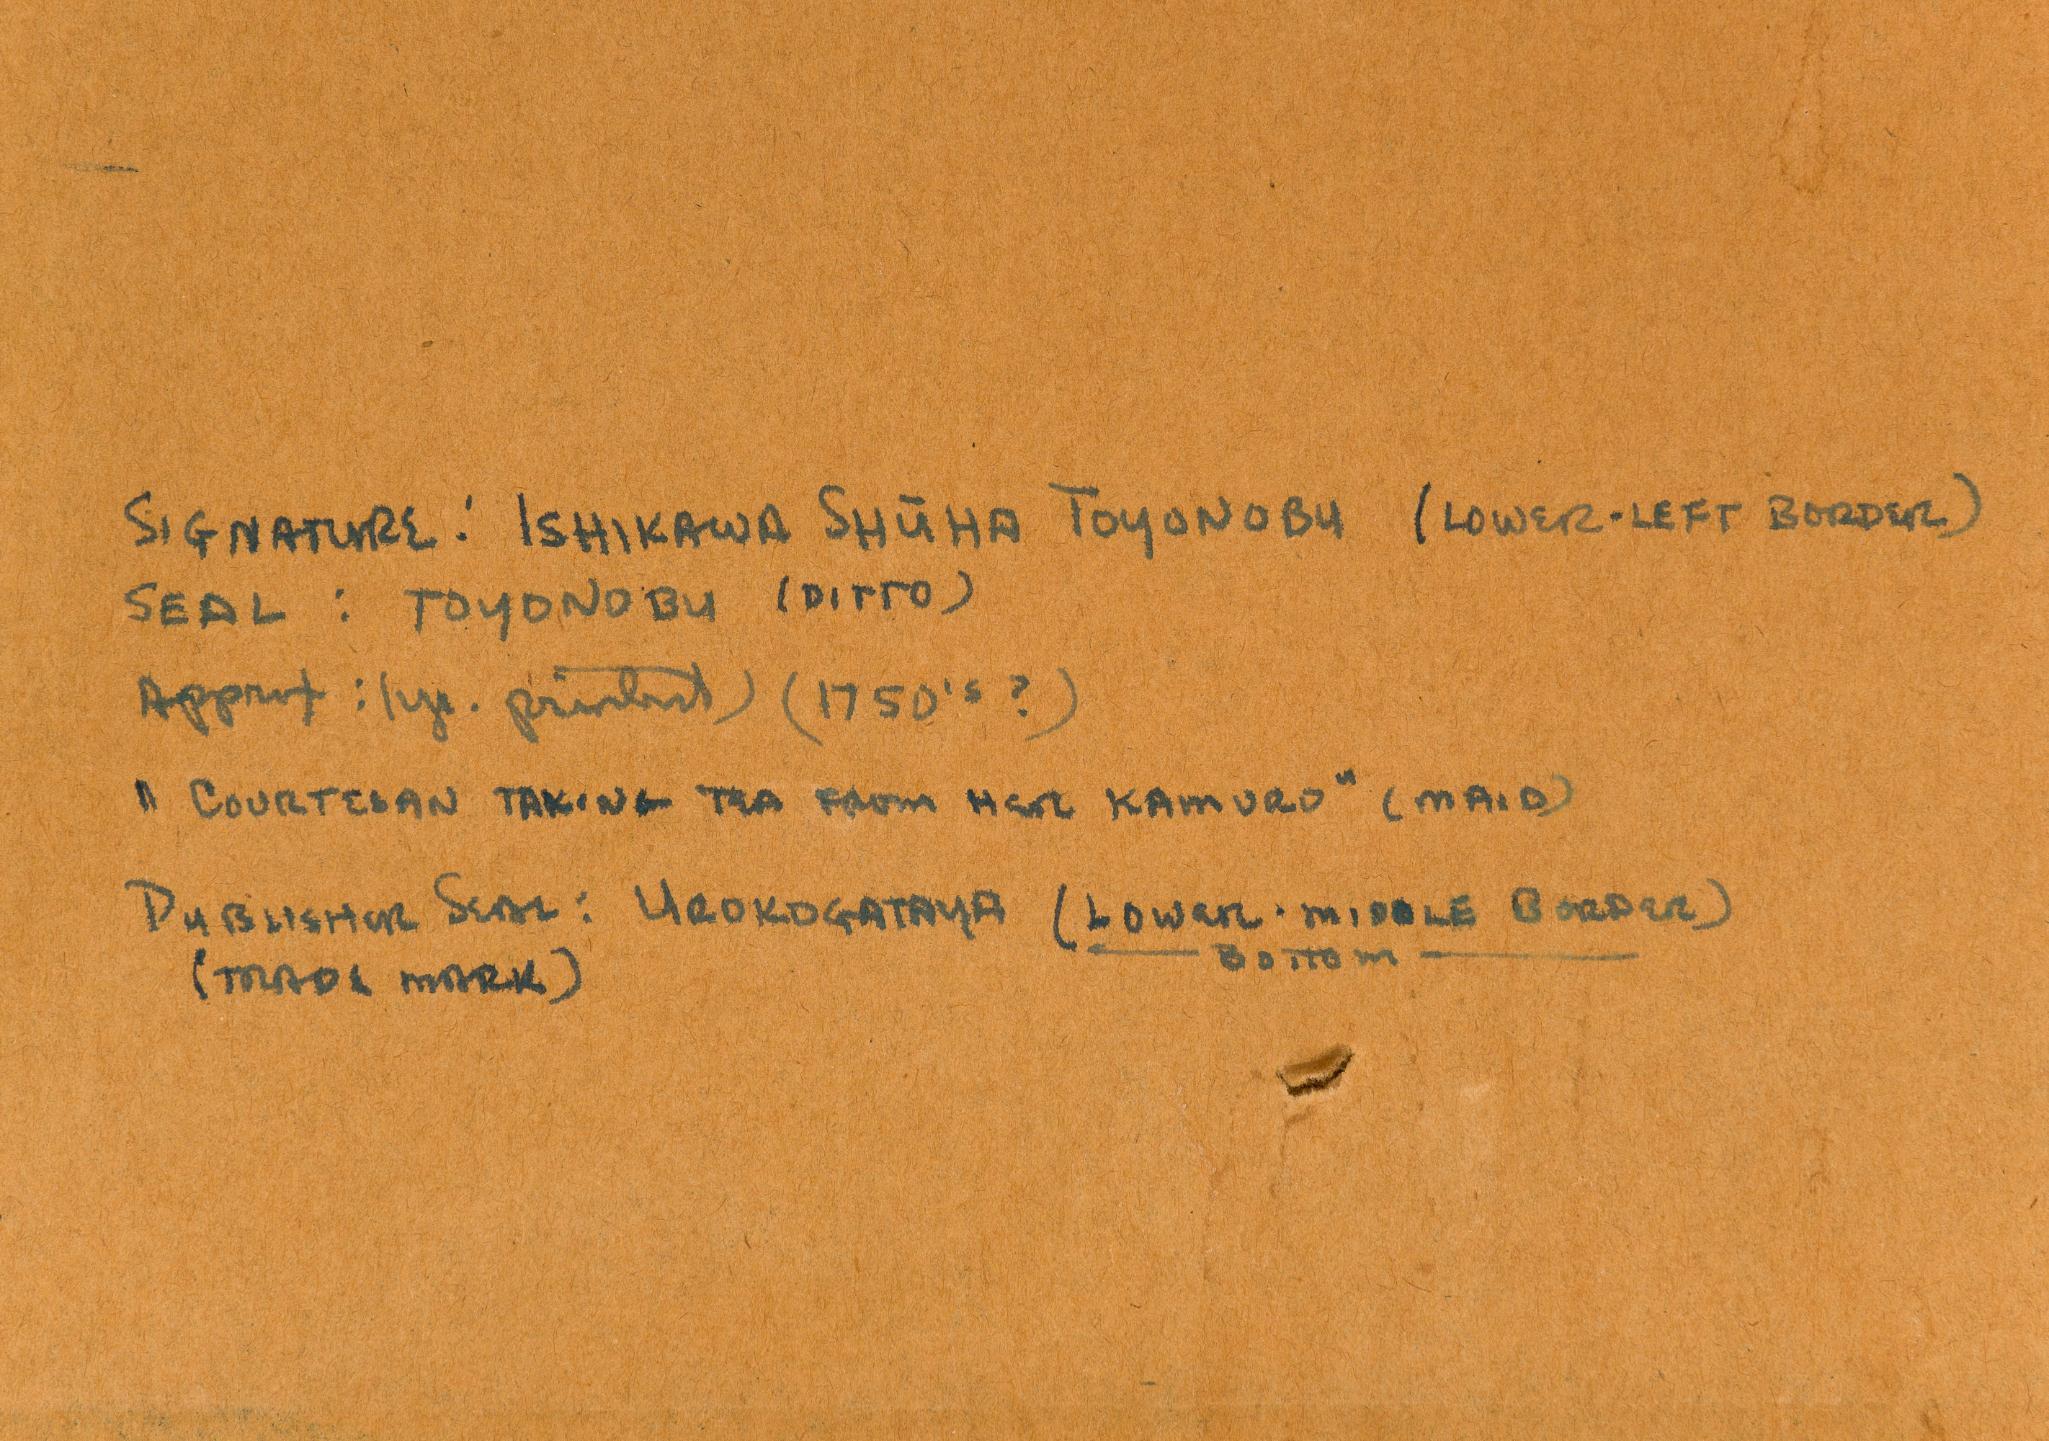 SIGNATURE: ISHIKAWA SHŪHA TOYONOBU (LOWER-LEFT BORDER)
SEAL : TOYONOBU (DITTO)
Approx : (yr. printed) (1750's ?)
"COURTESAN TAKING TEA FROM HER KAMURO" (MAID)
PUBLISHER SEAL: UROKOGATAYA (LOWER-MIDDLE BORDER)
BOTTOM
(TRADE MARK)